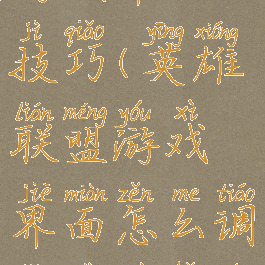 jì qiǎo yīng xióng
技巧(英雄
lián méng yóu xì
联盟游戏
jiè miàn zěn me tiáo
界面怎么调